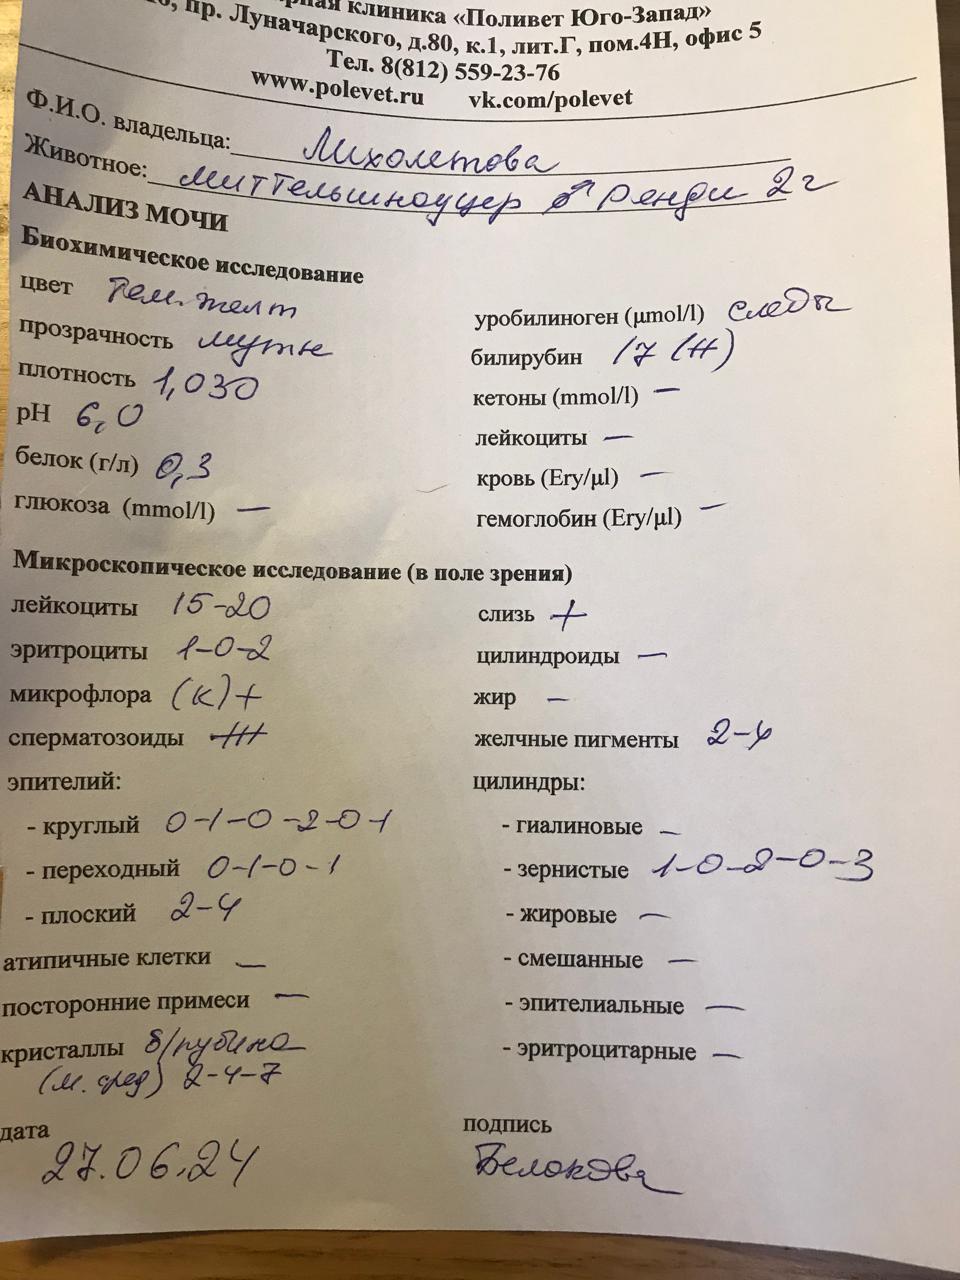 рная клиника «Поливет Юго-Запад»
пр. Луначарского, д.80, к.1, лит.Г, пом.4Н, офис 5
Тел. 8(812) 559-23-76
www.polevet.ru vk.com/polevet
Ф.И.О. владельца: Лихолетова
Животное: миттельшнауцер ♂ Ренди 2 г
АНАЛИЗ МОЧИ
Биохимическое исследование
цвет тем. желт
прозрачность мутн
плотность 1,030
pH 6,0
белок (г/л) 0,3
глюкоза (mmol/l) —
уробилиноген (µmol/l) следы
билирубин 17 (+)
кетоны (mmol/l) —
лейкоциты —
кровь (Ery/µl) —
гемоглобин (Ery/µl) —
Микроскопическое исследование (в поле зрения)
лейкоциты 15-20
эритроциты 1-0-2
микрофлора (к)+
сперматозоиды +++
эпителий:
- круглый 0-1-0-2-0-1
- переходный 0-1-0-1
- плоский 2-4
атипичные клетки —
посторонние примеси —
кристаллы б/рубина
(м. сред) 2-4-7
слизь +
цилиндроиды —
жир —
желчные пигменты 2-4
цилиндры:
- гиалиновые —
- зернистые 1-0-2-0-3
- жировые —
- смешанные —
- эпителиальные —
- эритроцитарные —
дата
27.06.24
подпись